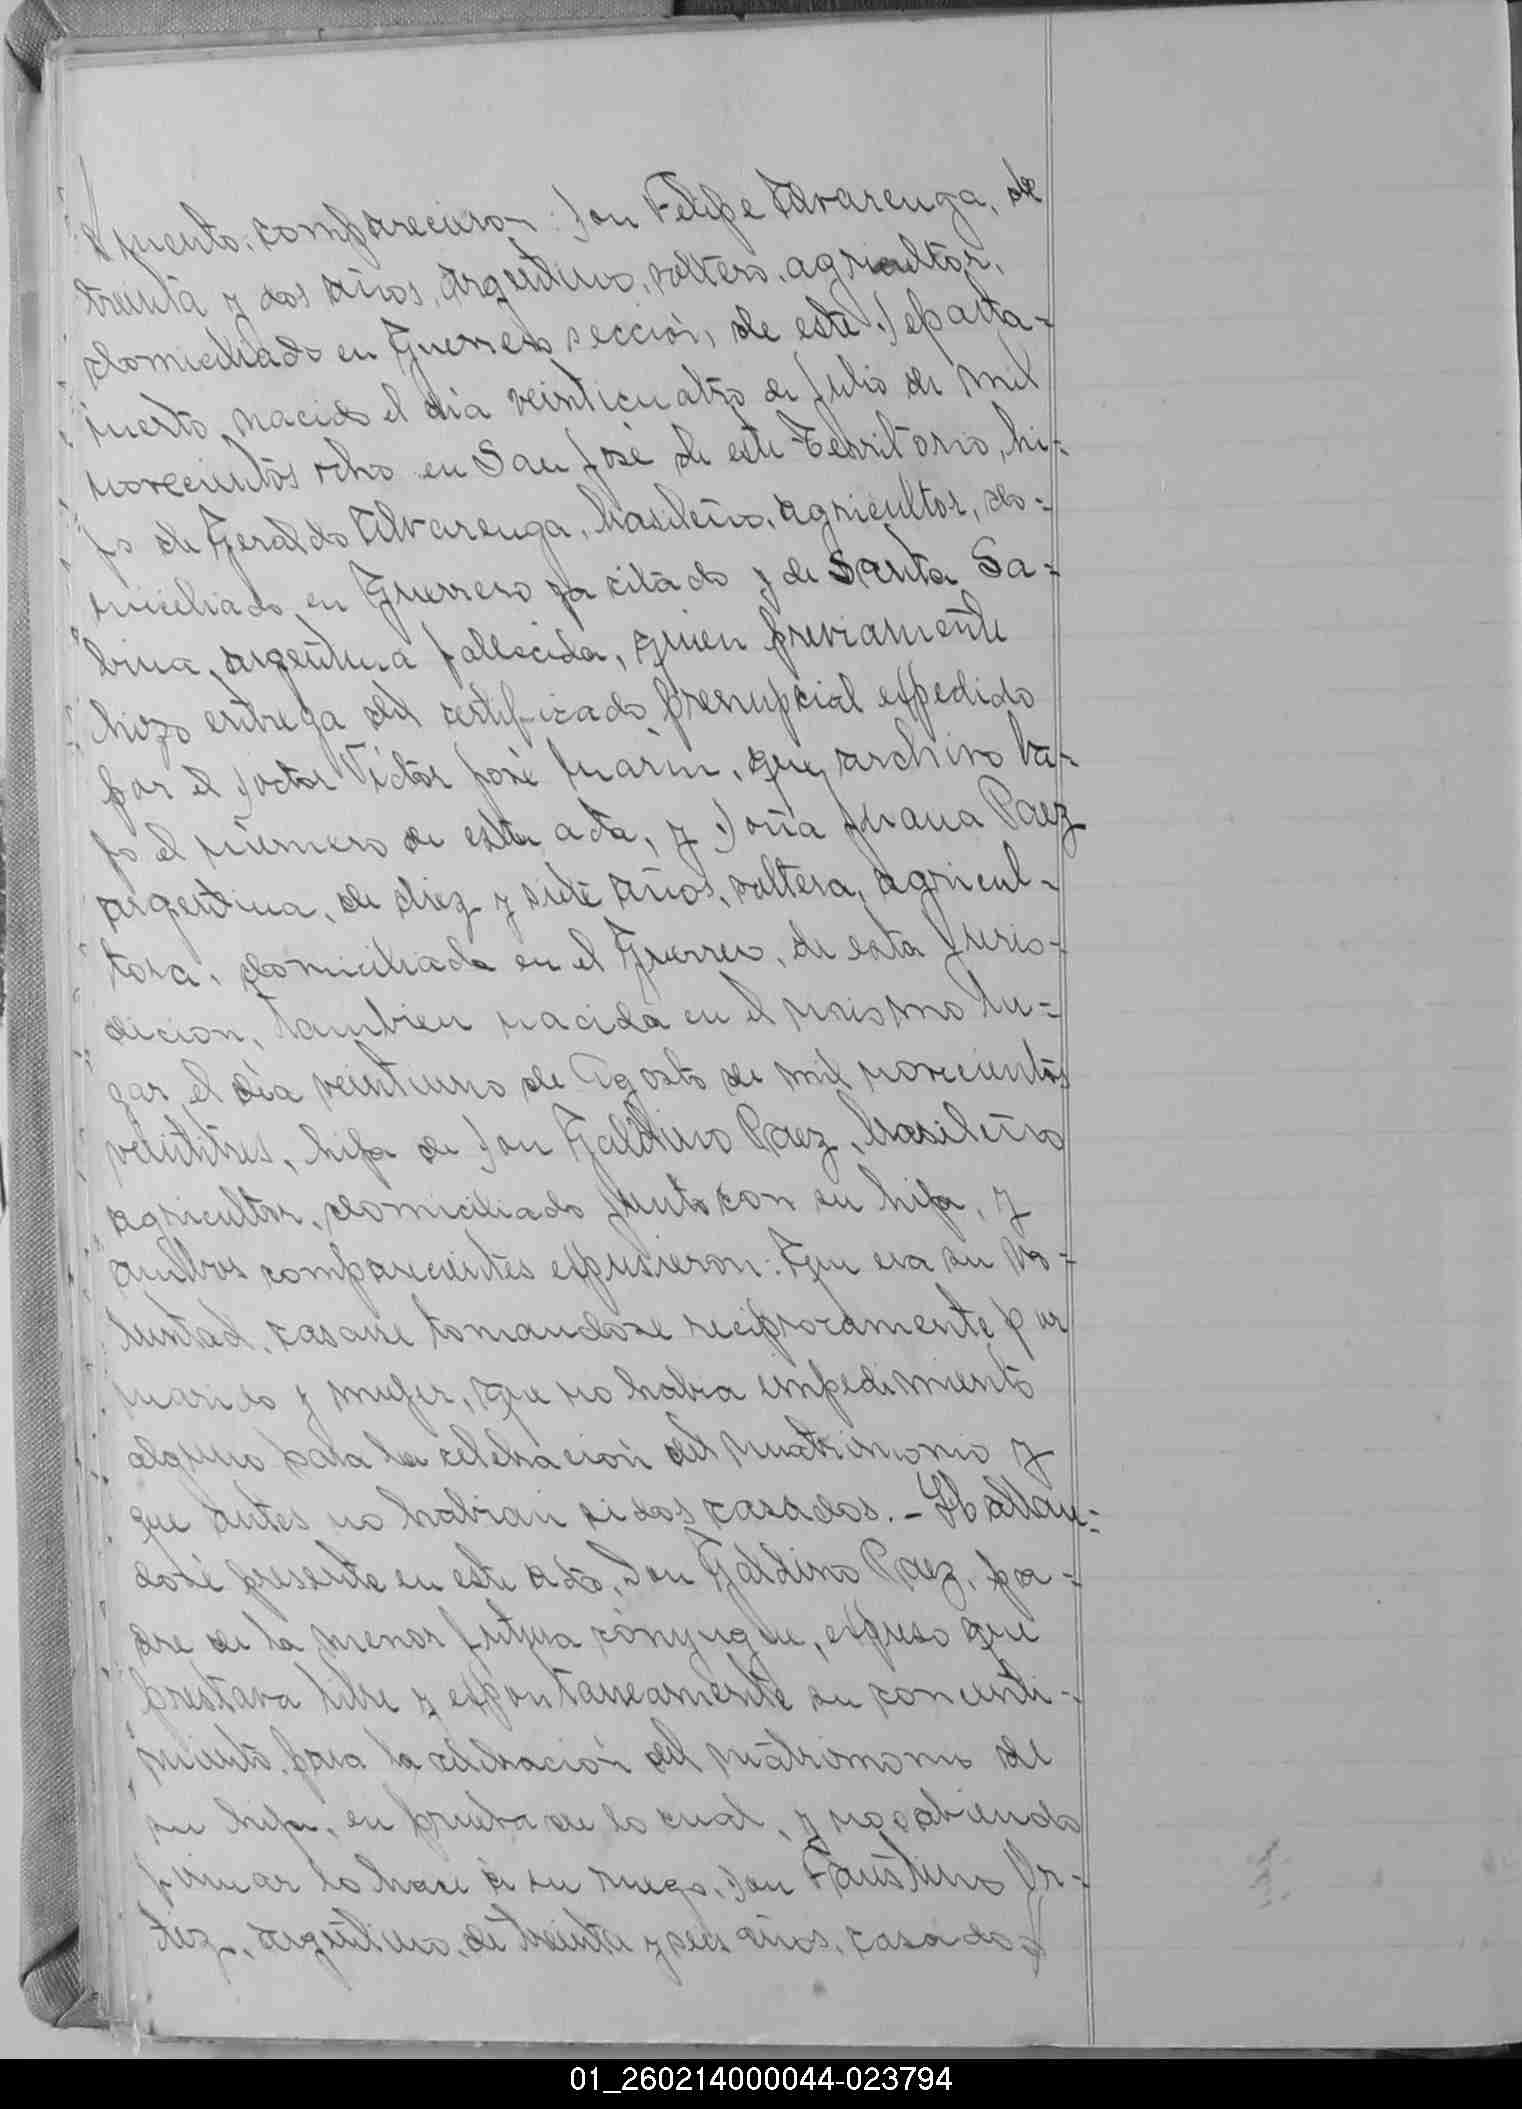 comparecieron: Don Felipe Alvarenga, de
treinta y dos años, argentino, soltero, agricultor,
domiciliado en Guerrero sección, de este Departa-
mento, nacido el día veinticuatro de Julio de mil
novecientos ocho en San José de este Territorio, hi-
jo de Geraldo Alvarenga, brasileño, agricultor, do-
miciliado en Guerrero ya citado y de Santa Sa-
bina, argentina fallecida, quien previamente
hizo entrega del certificado prenupcial expedido
por el Doctor Victor José Marin, que archivo ba-
jo el número de esta acta, y Doña Juana Paez
argentina, de diez y siete años, soltera, agricul-
tora, domiciliada en el Guerrero, de esta Juris-
dicion, tambien nacida en el mismo lu-
gar el día veintiuno de Agosto de mil novecientos
veintitres, hija de Don Galdino Paez, brasileño
agricultor, domiciliado junto con su hija, y
ambos comparecientes expusieron: Que era su vo-
luntad, casarse tomandose reciprocamente por
marido y mujer, que no habia impedimento
alguno para la celebracion del matrimonio y
que antes no habian sidos casados. - Hallan-
dose presente en este acto, Don Galdino Paez, pa-
dre de la menor futura cónyugue, expreso que
prestava libre y espontaneamente su concenti-
miento para la celebración del matrimonio de
su hija, en prueba de lo cual, y no sabiendo
firmar lo hace á su ruego, Don Faustino Or-
tiz, argentino, de treinta y seis años, casado,
01_260214000044-023794